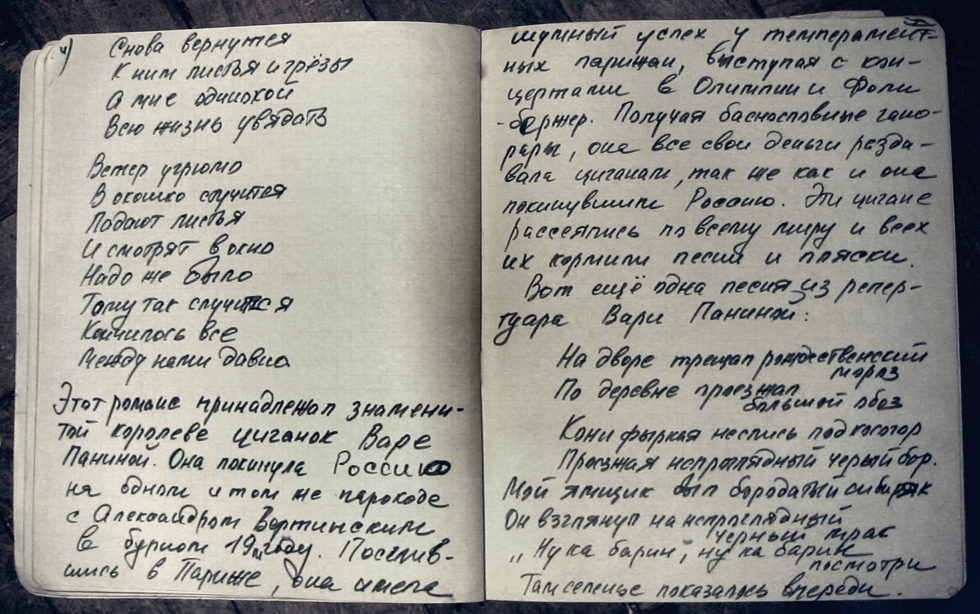 4) Снова вернутся
К ним листья и грёзы
А мне одинокой
Всю жизнь увядать
Ветер угрюмо
В окошко стучится
Падают листья
И смотрят в окно
Надо же было
Тому так случится
Кончилось все
Между нами давно
Этот романс принадлежал знамени-
той королеве цыганок Варе
Паниной. Она покинула Россию
на одном и том же пароходе
с Александром Вертинским
в бурном 19 году. Поселив-
шись в Париже, она имела
шумный успех у темперамент-
ных парижан, выступая с кон-
цертами в Олимпии и Фоли
-бержер. Получая баснословные гоно-
рары, она все свои деньги разда-
вала цыганам, так же как и она
покинувшим Россию. Эти цыгане
рассеялись по всему миру и всех
их кормили песни и пляски.
Вот ещё одна песня из репер-
туара Вари Паниной:
На дворе трещал рождественский
мороз
По деревне проезжал
большой обоз
Кони фыркая неслись под косогор
Проезжая непроглядный черый бор.
Мой ямщик был бородатый сибиряк
Он взглянул на непроглядный
черный мрак
„Ну ка барин, ну ка барин
посмотри
Там селенье показалось впереди.